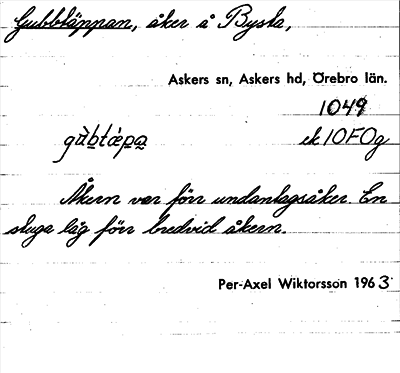 Gubbtäppan, åker å Bysta,
Askers sn, Askers hd, Örebro län.
1049
ek 10F0g
Åkern var förr undantagsåker. En
stuga låg förr bredvid åkern.
Per-Axel Wiktorsson 1963